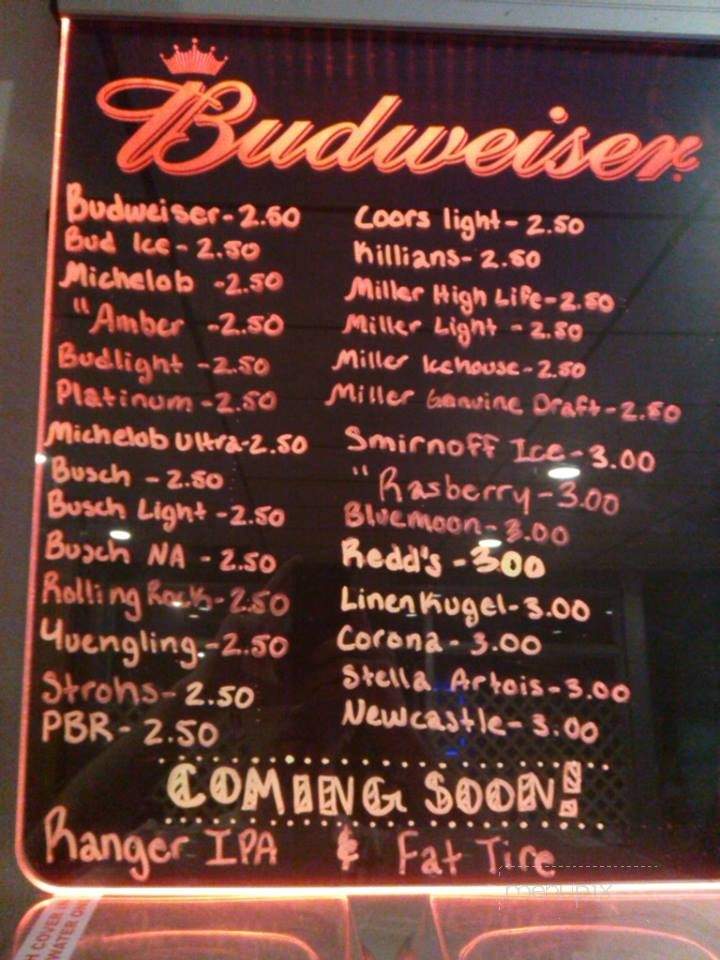 Budweiser
Budweiser - 2.50
Bud Ice - 2.50
Michelob - 2.50
" Amber - 2.50
Budlight - 2.50
Platinum - 2.50
Michelob Ultra - 2.50
Busch - 2.50
Busch Light - 2.50
Busch NA - 2.50
Rolling Rock - 2.50
Yuengling - 2.50
Strohs - 2.50
PBR - 2.50
Coors light - 2.50
Killians - 2.50
Miller High Life - 2.50
Miller Light - 2.50
Miller Icehouse - 2.50
Miller Genuine Draft - 2.50
Smirnoff Ice - 3.00
" Rasberry - 3.00
Bluemoon - 3.00
Redd's - 3.00
LinenKugel - 3.00
Corona - 3.00
Stella Artois - 3.00
Newcastle - 3.00
COMING SOON!
Ranger IPA & Fat Tire
menupix
COVER
WATER